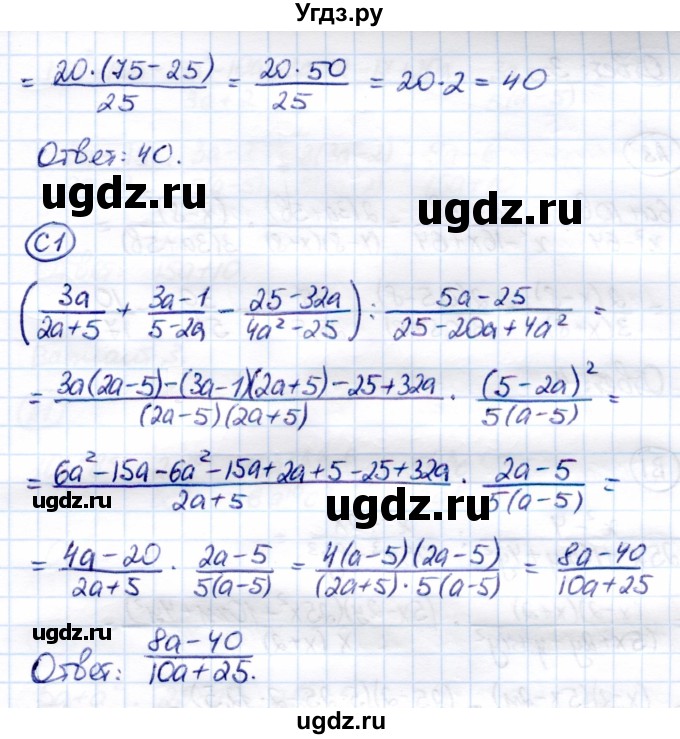 Угдз.ру
= 20·(75-25)/25 = 20·50/25 = 20·2 = 40
Ответ: 40.
ugdz.ru ugdz.ru
C1
(3a/(2a+5) + (3a-1)/(5-2a) - (25-32a)/(4a²-25)) : (5a-25)/(25-20a+4a²) =
= (3a(2a-5)-(3a-1)(2a+5)-25+32a)/((2a-5)(2a+5)) · (5-2a)²/(5(a-5)) =
= (6a²-15a-6a²-15a+2a+5-25+32a)/(2a+5) · (2a-5)/(5(a-5)) =
ugdz.ru ugdz.ru ugdz.ru
= (4a-20)/(2a+5) · (2a-5)/(5(a-5)) = (4(a-5)(2a-5))/((2a+5)·5(a-5)) = (8a-40)/(10a+25)
ugdz.ru ugdz.ru
Ответ: (8a-40)/(10a+25).
ugdz.ru